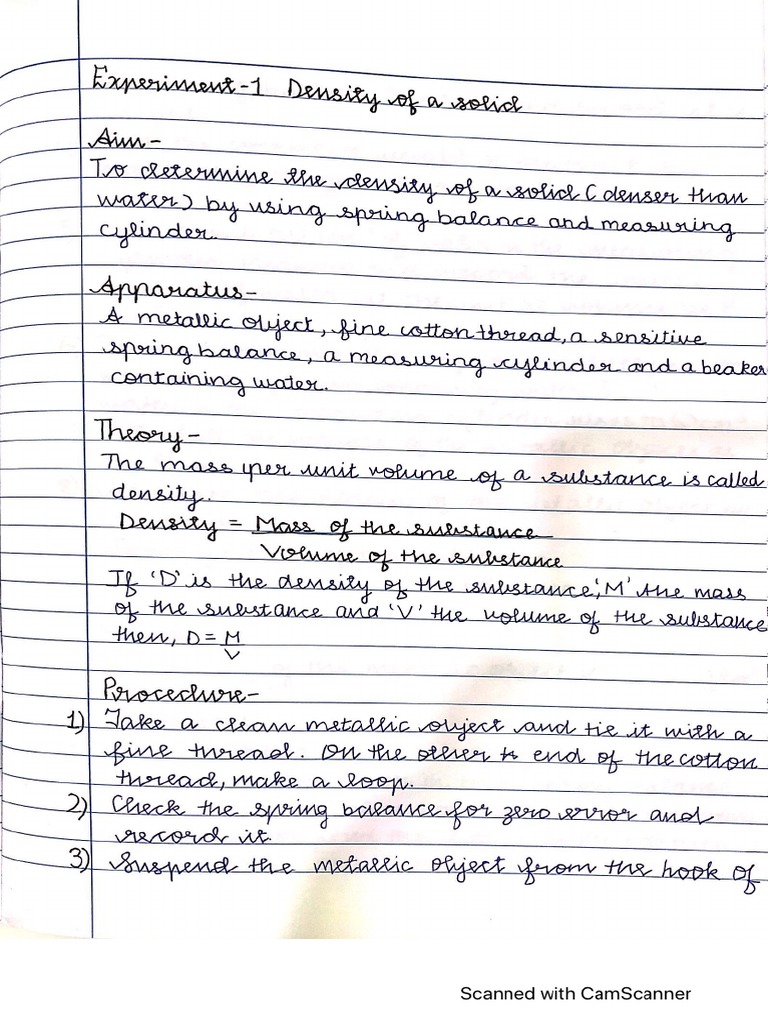 Experiment-1 Density of a solid
Aim-
To determine the density of a solid (denser than
water) by using spring balance and measuring
cylinder.
Apparatus-
A metallic object, fine cotton thread, a sensitive
spring balance, a measuring cylinder and a beaker
containing water.
Theory-
The mass per unit volume of a substance is called
density.
Density = Mass of the substance
Volume of the substance
If 'D' is the density of the substance, 'M' the mass
of the substance and 'V' the volume of the substance
then, D = M
V
Procedure-
1) Take a clean metallic object and tie it with a
fine thread. On the other end of the cotton
thread, make a loop.
2) Check the spring balance for zero error and
record it.
3) Suspend the metallic object from the hook of
Scanned with CamScanner